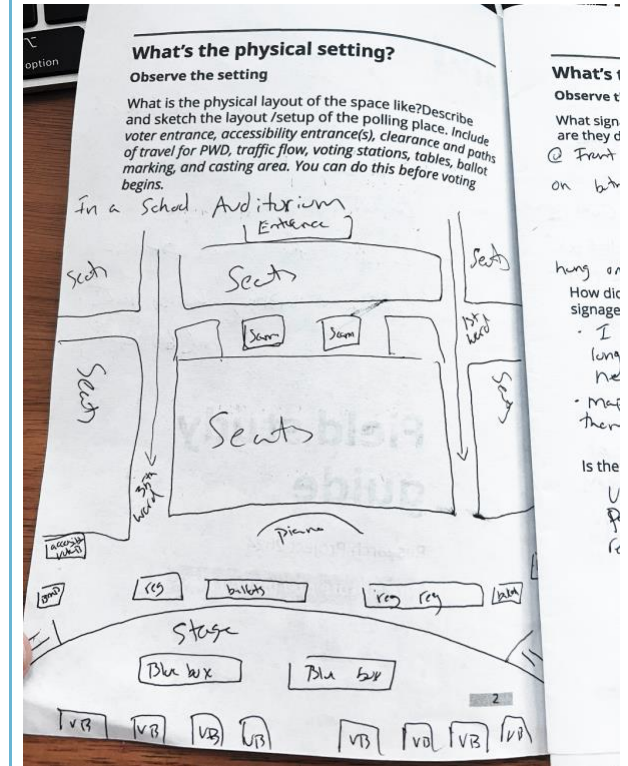 option
What's the physical setting?
Observe the setting
What is the physical layout of the space like?Describe
and sketch the layout /setup of the polling place. Include
voter entrance, accessibility entrance(s), clearance and paths
of travel for PWD, traffic flow, voting stations, tables, ballot
marking, and casting area. You can do this before voting
begins.
In a School Auditorium
Entrance
Seats
Seats
Seats
Scan
Scan
1st
ward
Seats
Seats
Seats
ward
Piano
reg
ballots
reg reg
Stage
Blue box
Blue box
2
VB
VB
VB
VB
VB
VB
VB
VB
What's
Observe
What sign
are they d
@ Front
on
hung on
How did
signage
I
long
Is the